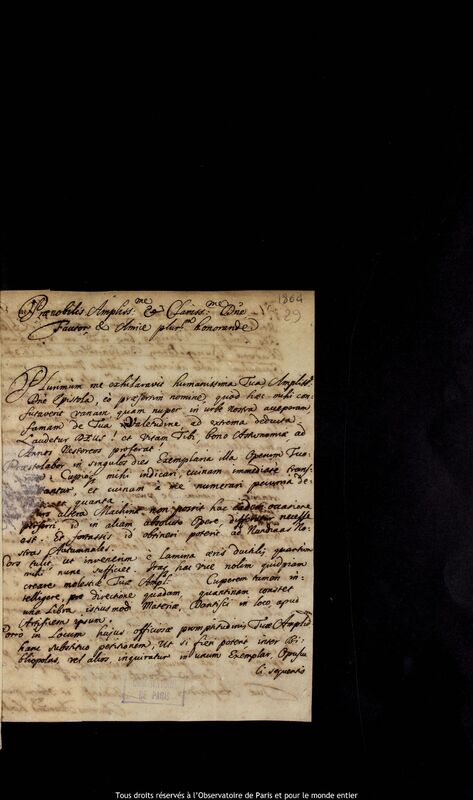 1864
29
Prænobilis Ampliss:me & Clariss:me Dne
Fautor, & Amice plur: honorande
Plurimum me exhilaravit humanissima Tua, Ampliss:
Dne Epistola, eo præsertim nomine, quod hac mihi con-
futaverit vanam, quam nuper in urbe nostra acceperam
famam de Tua Valetudine ad extrema deducta.
Laudetur DEUS! et Vitam Tibi, bono Astronomiæ ad
Annos Nestoreos proferat!
Præstolabor in singulos dies Exemplaria illa Operum Tuo-
Cuproque mihi indicari cuinam immediate trans-
antur, et cuinam a me numerari pecunia de-
et quanta.
altera Machina non possit hac eadem occasione
perferri, id in aliam absoluto Opere, differetur necesse
est. Et fortassis id obtineri poterit ad Nundinas No-
stras Autumnales.
Fors tulit, ut invenerim e Lamina æris ductilis quantum
mihi nunc sufficiet. Itac hac vice nolim quidquam
creare molestiæ Tuæ Ampl: Cuperem tamen in-
telligere, pro directione quadam, quantinam constet
una Libra istius mod Materiæ, Dantisci in loco apud
Artificem ipsum.
Porro in Locum hujus officiosæ promptitudinis Tuæ Amplid:
hanc substituo petitionem; Ut si fieri poterit inter Bi-
bliopolas, vel alios, inquiratur in unum Exemplar, Opuscu
li sequentis
OBSERVATOIRE
DE PARIS
Tous droits réservés à l'Observatoire de Paris et pour le monde entier